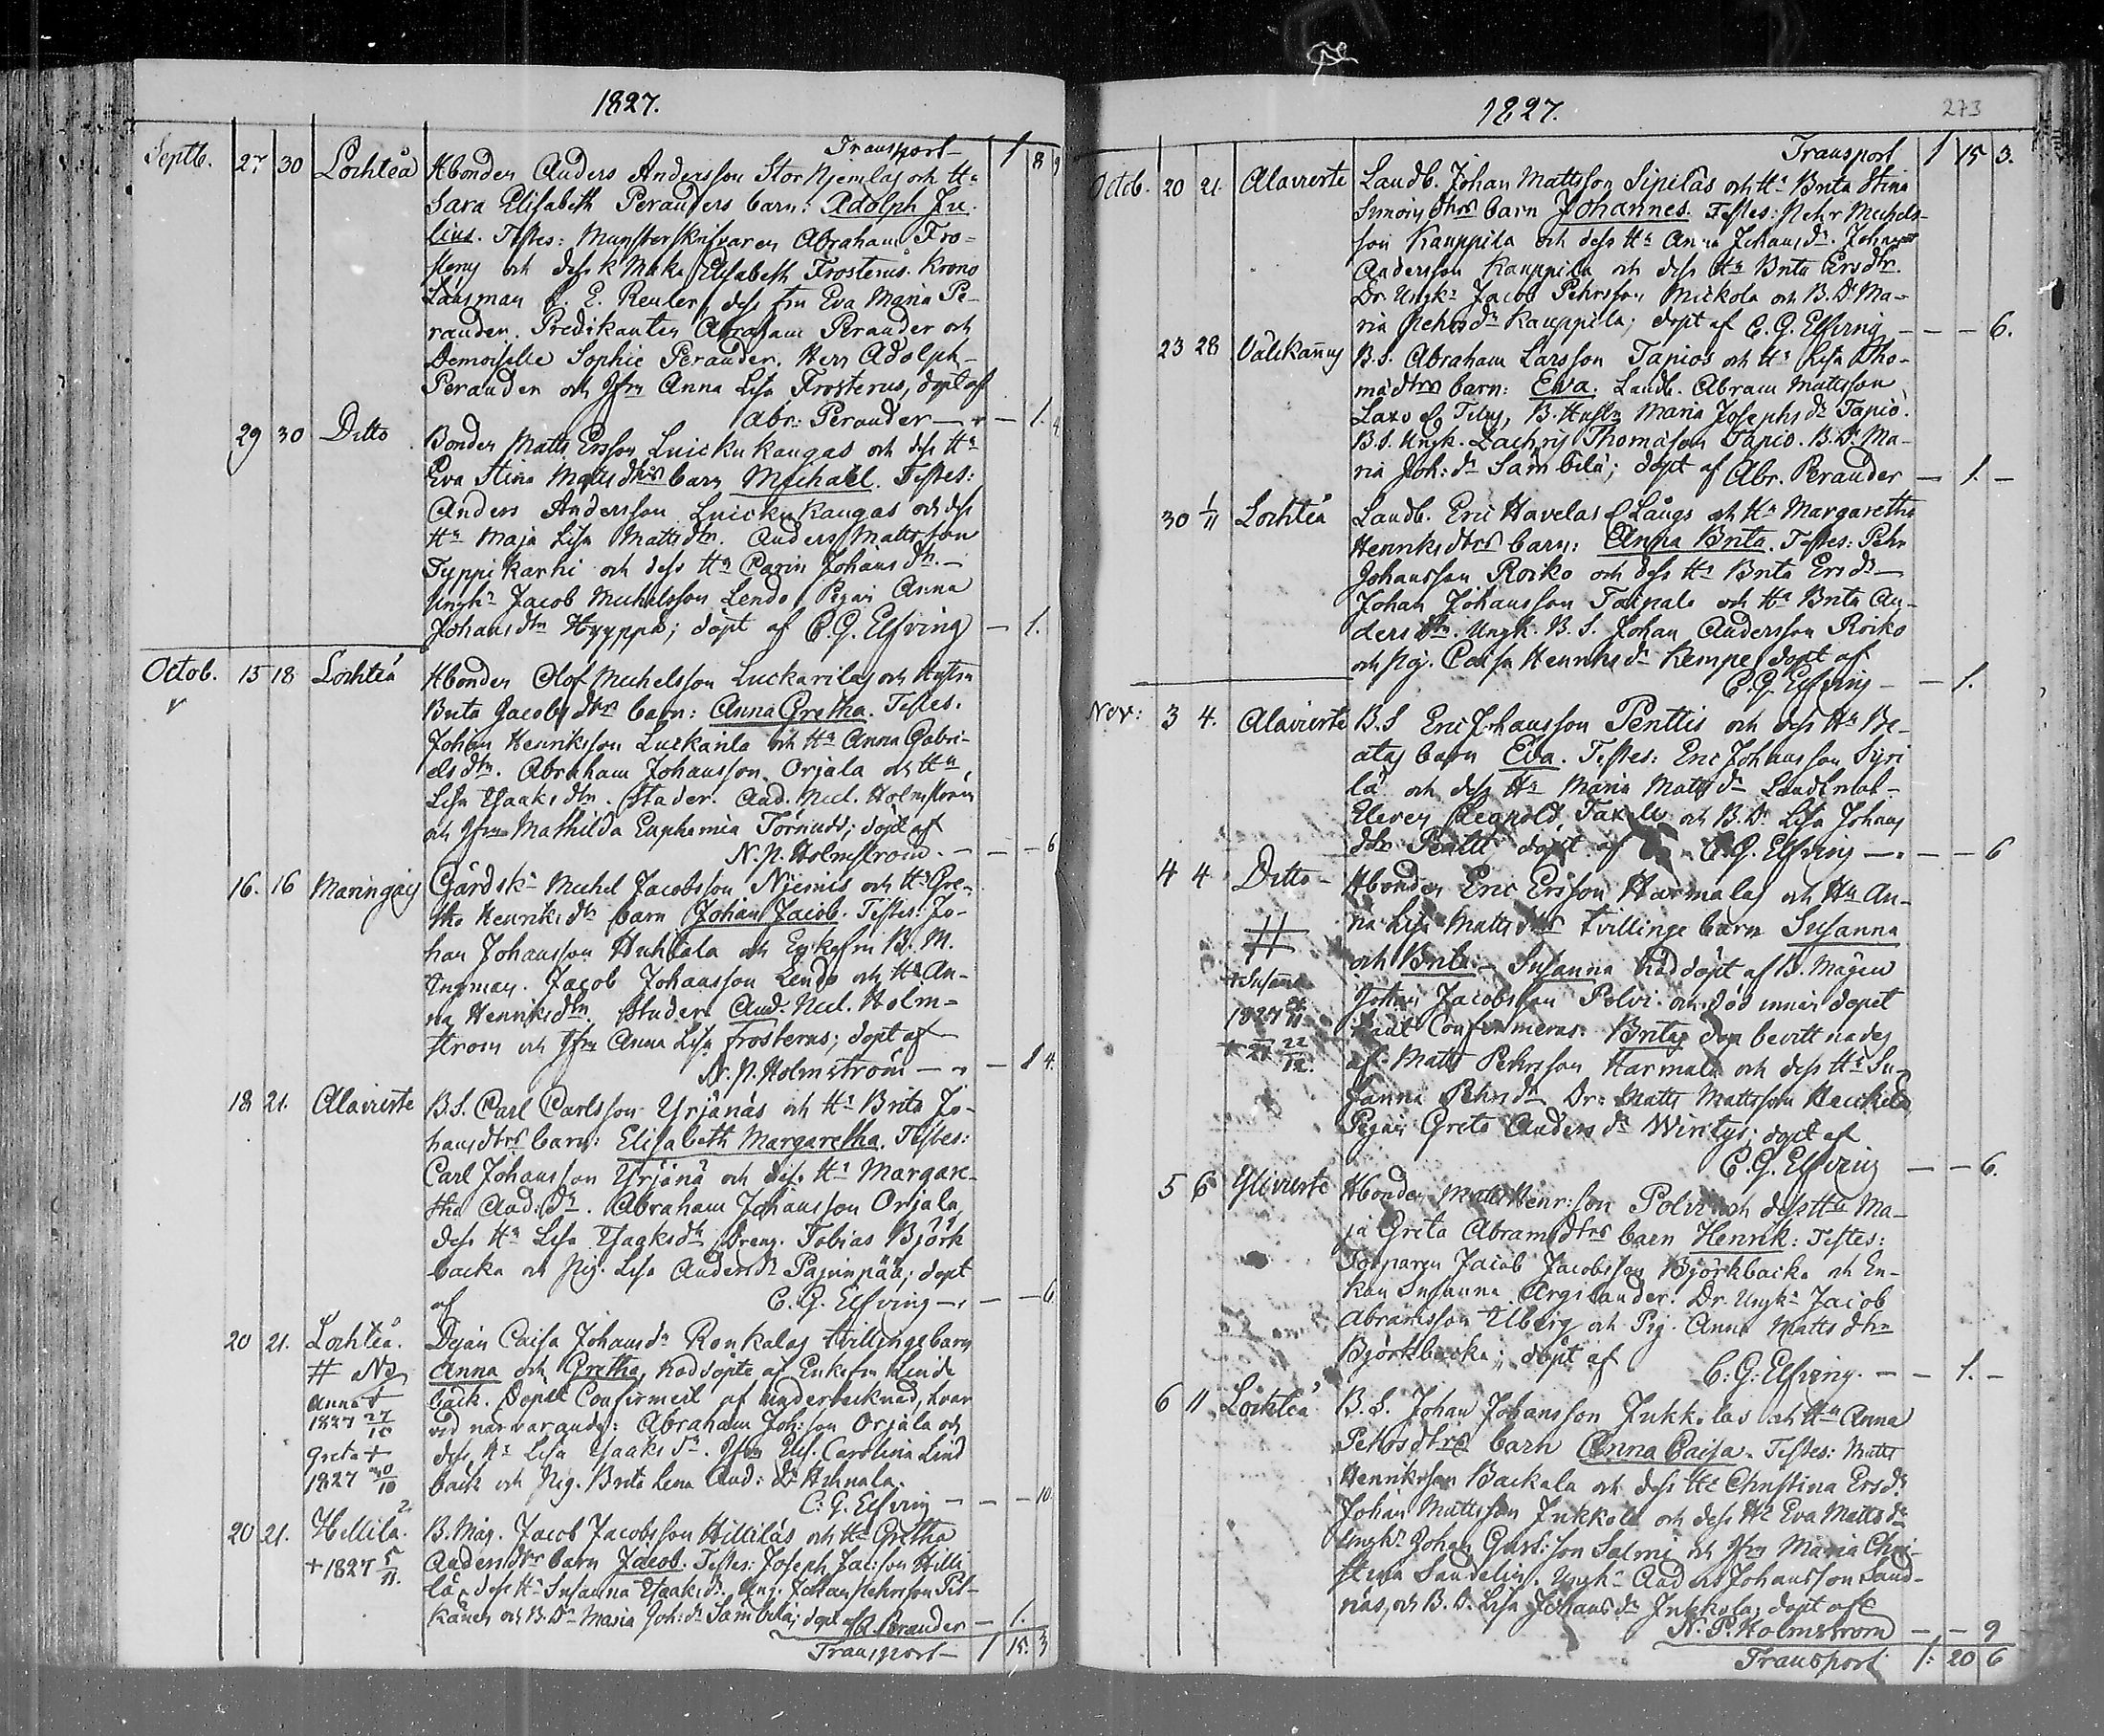 1827.
Transport 1 8 9
Septb. 27 30 Lochteå Hbonden Anders Andersson Stor Njemlas och Hu
Sara Elisabeth Peranders barn: Adolph Ju-
lius. Testes: Munsterskrifvaren Abraham Fro-
steng och dess k Maka Elisabeth Frosterus. Krono
Länsman E. E. Reuler, dess fru Eva Maria Pe-
rander. Predikanten Abraham Perander och
Demoiselle Sophie Perander. Herr Adolph
Perander och Jfru Anna Lisa Frosterus, döpt af
Abr: Perander — 1. 4
29 30 Ditto Bonden Matts Ersson Luickukangas och dess Hu
Eva Stina Mattsdtrs barn Michaël. Testes:
Anders Andersson Luickukangas och dess
Hu Maja Lisa Mattsdtr. Anders Mattsson
Typpikarhi och dess Hu Carin Johansdtr. —
Ungk: Jacob Michelsson Lendo, Pigan Anna
Johansdtr Hyyppä; döpt af C. G. Elfving — 1.
Octob. 15 18 Lochteå Hbonden Olof Michelsson Luckarilas och Hustru
Brita Jacobsdtrs barn: Anna Gretha. Testes.
Johan Henriksson Luckarila och Hu Anna Gabri-
elsdtr. Abraham Johansson Orjala och Hu
Lisa Isaaksdtr. Studer. And. Mich. Holmström
och Jfru Mathilda Euphemia Törnudd; döpt af
N. P. Holmström. — — 6
16. 16 Maringais Gårdsk: Michel Jacobsson Njemis och Hu Gre-
tha Henriksdtr barn Johan Jacob. Testes: Jo-
han Johansson Huhtala och Enkefru B. M.
Ingman. Jacob Johansson Lendo och Hu An-
na Henriksdtr. Studer. And. Mich. Holm-
ström och Jfru Anna Lisa Frosterus; döpt af
N. P. Holmström — — 1 4.
18 21. Alavirste B. S. Carl Carlsson Yrjänäs och Hu Brita Jo-
hansdtrs barn: Elisabeth Margaretha. Testes:
Carl Johansson Yrjänä och dess Hu Margare-
tha And: dr. Abraham Johansson Orjala,
dess Hu Lisa Isaaksdtr, Dreng. Tobias Björk
backa och Pig. Lisa Andersdr Pajunpää; döpt
af C. G. Elfving — — 6.
20 21. Lochteå. Dejan Caisa Johansdr Ronkalas tvillingebarn
# Anna och Gretha, nöddöpte af Enkefru Linde
Anna + bäck. Döpelt Confirmeit af undertecknad, hvar
1827 27/10 vid närvarande: Abraham Joh: son Orjala och
Greta + dess Hu Lisa Isaaksdr. Jfru Elis. Carolina Lind
1827 30/10 bäck och Pig. Brita Lena And: dr Ahnala.
C. G. Elfving — — 10.
20 21. Hillilä. B. Måg. Jacob Jacobsson Hilliläs och Hu Gretha
+ 1827 5/11. Andersdtrs barn Jacob. Testes: Joseph Jac: son Hilli
lä, dess Hu Susanna Isaaksdr. Ung. Johan Pehrsson Pit-
känen och B. Dr Maria Joh: dr Sämbilä; döpt af A. Perander — 1.
Transport — 1 15. 3
1827. 273
Transport 1 15 3.
Octob. 20 21. Alavirste Landb. Johan Mattsson Sipiläs och Hu Brita Stina
Simonsdtrs barn Johannes. Testes: Pehr Michels-
son Kauppila och dess Hu Anna Johansdr. Johan
Andersson Kauppila och dess Hu Brita Ersdtr.
Dr. Ungk: Jacob Pehrsson Mickola och B. Dr Ma-
ria Pehrsdr Kauppila; döpt af C. G. Elfving — — — 6.
23 28 Välikannus B. S. Abraham Larsson Tapios och Hu Lisa Tho-
mædtrs barn: Eva. Landb. Abram Mattsson
Laxo, B. Hustru Maria Josephsdr Tapio.
B. S. Ungk. Zachris Thomasson Tapio. B. Dr Ma-
ria Joh: dr Sämbilä; döpt af Abr. Perander — 1. —
30 1/11 Lochteå Landb. Eric Havelas Långs och Hu Margaretha
Henriksdtrs barn: Anna Brita. Testes: Pehr
Johansson Roiko och dess Hu Brita Ersdr —
Johan Johansson Taipale och Hu Brita An-
dersdtr. Ungk. B. S. Johan Andersson Roiko
och Pig. Caisa Henriksdr Kempe, döpt af
C. G. Elfving — — 1.
Nov: 3 4. Alavirste B. S Eric Johansson Penttis och dess Hu Be-
atas barn Eva. Testes: Eric Johansson Pyri
lä och dess Hu Maria Mattsdr Landtmät-
Eleven Leopold Taxell och B. Dr Lisa Johans
dtr Pentti döpt af C. G. Elfving — — — 6
4 4 Ditto — Hbonden Eric Ersson Harmalas och Hu An-
# na Lisa Mattsdtrs tvillinge barn Susanna
och Brita. — Susanna nöddöpt af B. Mågen
+ Susanna Johan Jacobsson Polvi och död innan dopet
1827 4/11 hant Confirmeras. Britas dop bevittnades
+ 27 22/12. af: Matts Pehrsson Harmala och dess Hu Su-
sanna Pehrsdr. Dr: Matts Mattsson Heickilä
Pigan Greta Andersdr Wirtgs; döpt af
C. G. Elfving — — 6.
5 6 Ylivirste Hbonden Matts Henr: son Polvi och dess Hu Ma-
ja Greta Abramsdtrs barn Henrik: Testes:
Torparen Jacob Jacobsson Björkbacka och En-
kan Susanna Argilander. Dr. Ungk: Jacob
Abramsson Ulberg och Pig. Anna Mattsdtr
Björkbacka; döpt af C: G: Elfving. — — 1. —
6 11 Lochteå B. S. Johan Johansson Jukkolas och Hu Anna
Pehrsdtrs barn Anna Caisa. Testes: Matts
Henriksson Backala och dess Hu Christina Ersdr.
Johan Mattsson Jukkola och dess Hu Eva Mattsdr
Ungk: Johan Gust: son Salmi och Jfru Maria Chri-
stina Sandelin. Ungk: Anders Johansson Sand-
näs, och B. Dr. Lisa Johansdr Jukkola, döpt af
N. P. Holmström — — 9
Transport 1: 20 6